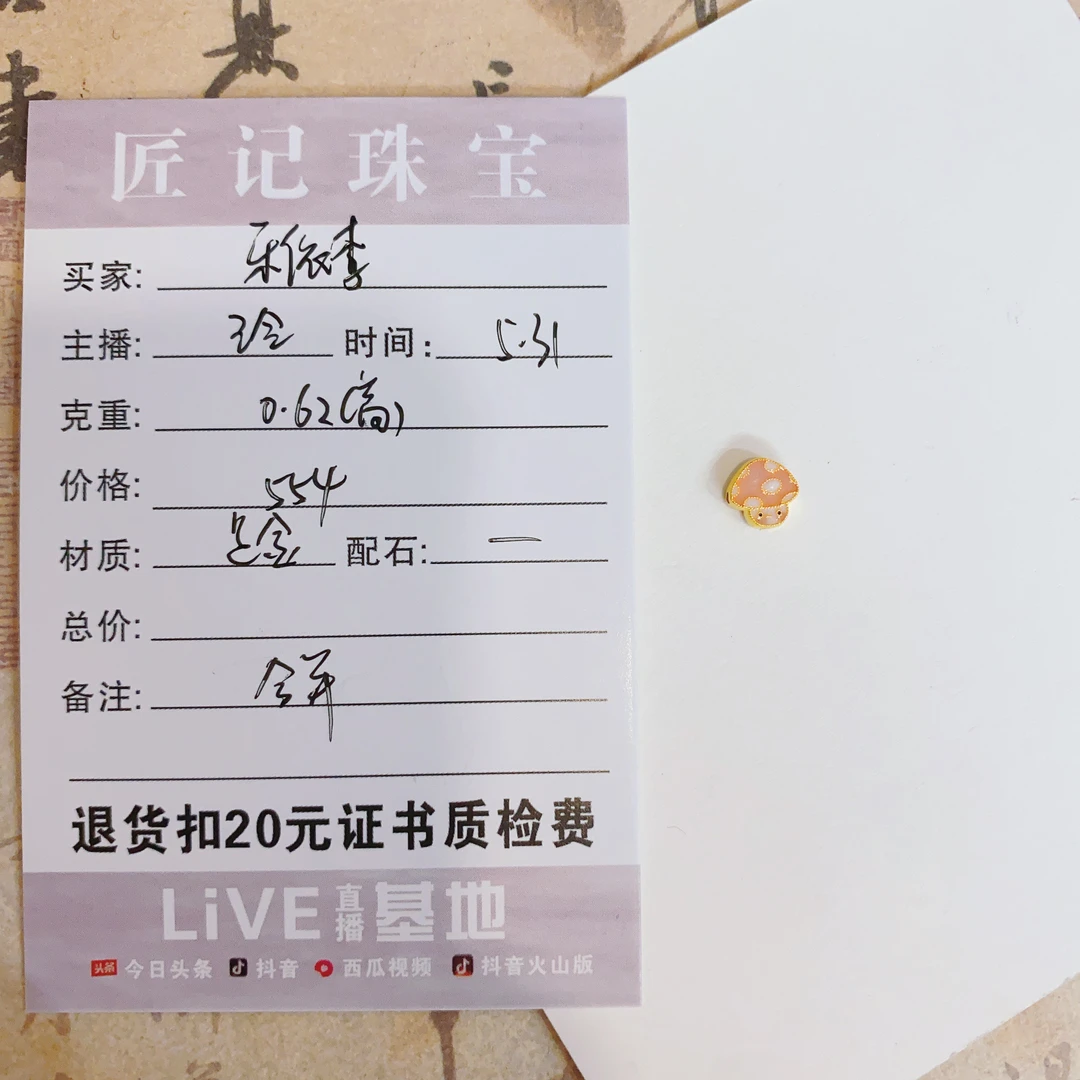 匠记珠宝
买家: 乐依李
主播: 玲 时间: 5.31
克重: 0.62(高)
价格: 554
材质: 足金 配石: 一
总价:
备注: 合并
退货扣20元证书质检费
LiVE直播基地
头条 今日头条 抖音 西瓜视频 抖音火山版